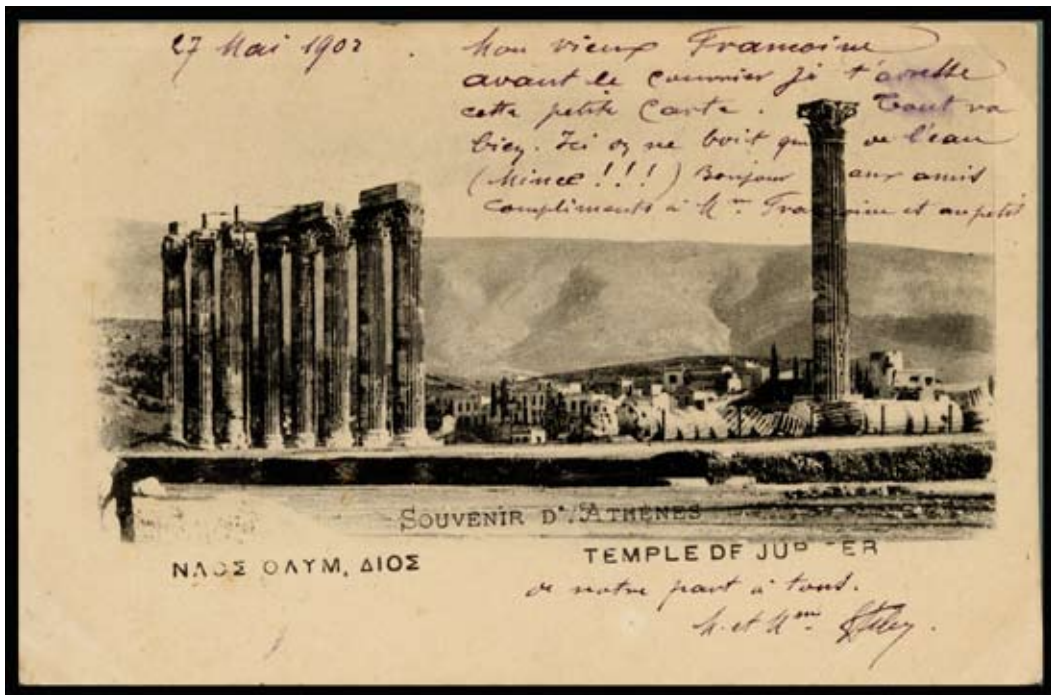 27 Mai 1902.
Mon vieux Framoine
avant le courrier je t'adresse
cette petite Carte. Tout va
bien. Ici on ne boit que de l'eau
(Mince!!!) Bonjour aux amis
Compliments à Mme Framoine et au petit
SOUVENIR D'ATHÈNES
ΝΑΟΣ ΟΛΥΜ, ΔΙΟΣ
TEMPLE DE JUP TER
de notre part à tous.
M. et Mme